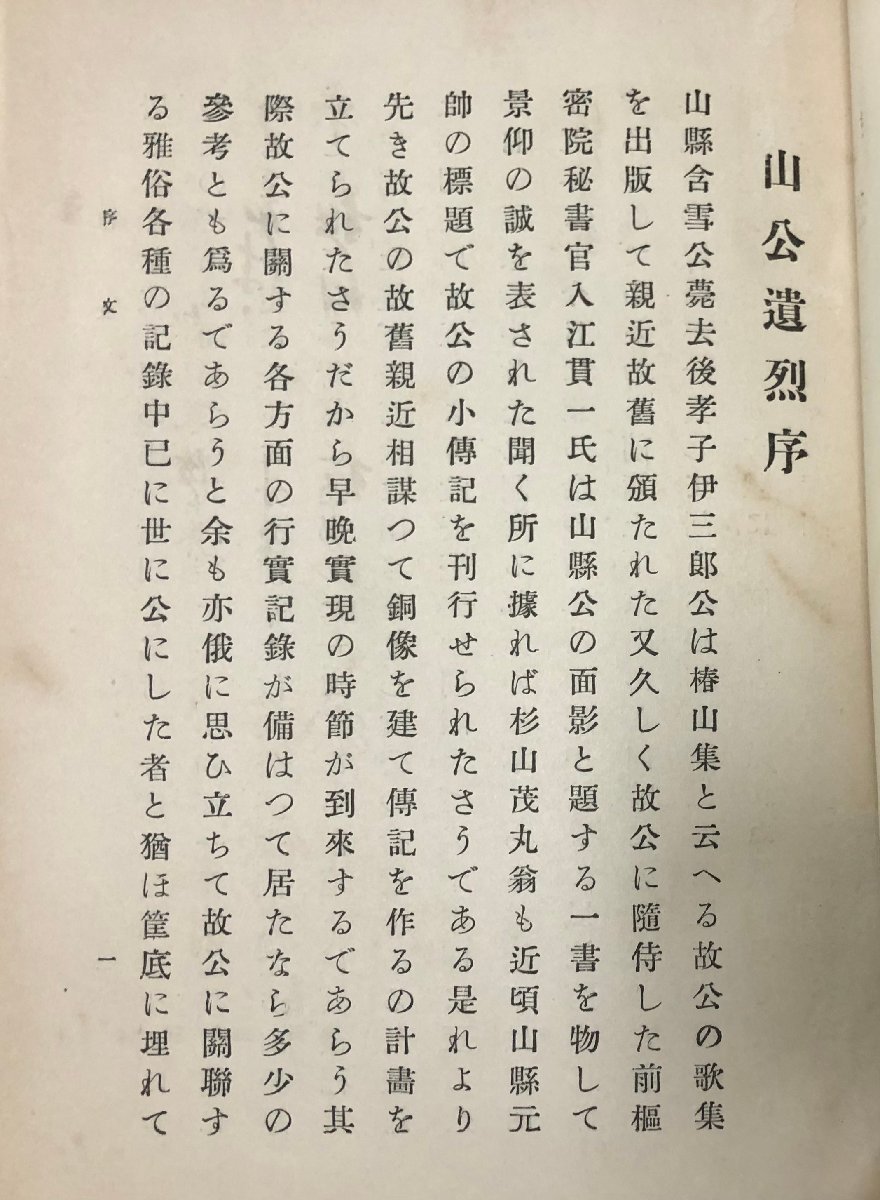 山公遺烈序
山縣含雪公薨去後孝子伊三郎公は椿山集と云へる故公の歌集
を出版して親近故舊に頒たれた又久しく故公に隨侍した前樞
密院秘書官入江貫一氏は山縣公の面影と題する一書を物して
景仰の誠を表された聞く所に據れば杉山茂丸翁も近頃山縣元
帥の標題で故公の小傳記を刊行せられたさうである是れより
先き故公の故舊親近相謀つて銅像を建て傳記を作るの計畫を
立てられたさうだから早晩實現の時節が到來するであらう其
際故公に關する各方面の行實記錄が備はつて居たなら多少の
參考とも爲るであらうと余も亦俄に思ひ立ちて故公に關聯す
る雅俗各種の記錄中已に世に公にした者と猶ほ筐底に埋れて
序文
一